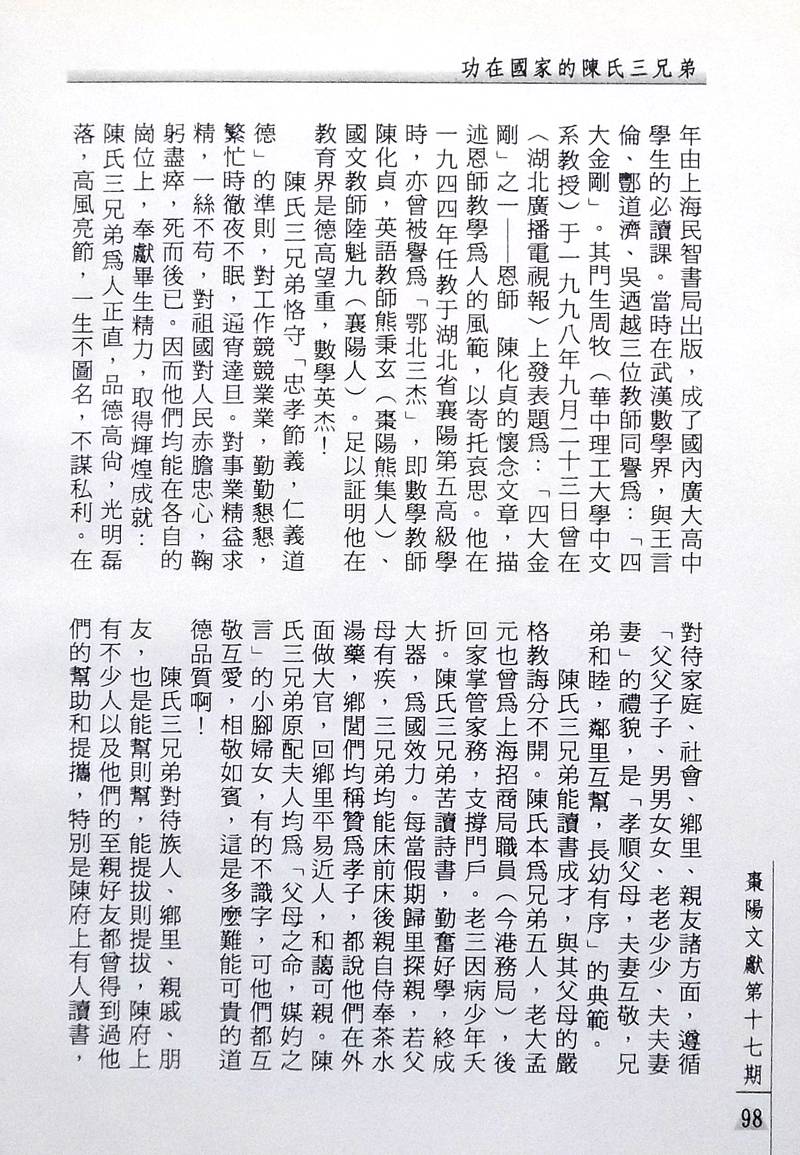 功在國家的陳氏三兄弟
年由上海民智書局出版，成了國內廣大高中
學生的必讀課。當時在武漢數學界，與王言
倫、酆道濟、吳迺越三位教師同譽爲：「四
大金剛」。其門生周牧（華中理工大學中文
系教授）于一九九八年九月二十三日曾在
〈湖北廣播電視報〉上發表題爲：「四大金
剛」之一——恩師　陳化貞的懷念文章，描
述恩師教學爲人的風範，以寄托哀思。他在
一九四四年任教于湖北省襄陽第五高級學
時，亦曾被譽爲「鄂北三杰」，即數學教師
陳化貞，英語教師熊秉玄（棗陽熊集人）、
國文教師陸魁九（襄陽人）。足以証明他在
教育界是德高望重，數學英杰！
陳氏三兄弟恪守「忠孝節義，仁義道
德」的準則，對工作競競業業，勤勤懇懇，
繁忙時徹夜不眠，通宵達旦。對事業精益求
精，一絲不苟，對祖國對人民赤膽忠心，鞠
躬盡瘁，死而後已。因而他們均能在各自的
崗位上，奉獻畢生精力，取得輝煌成就：
陳氏三兄弟爲人正直，品德高尚，光明磊
落，高風亮節，一生不圖名，不謀私利。在
對待家庭、社會、鄉里、親友諸方面，遵循
「父父子子、男男女女、老老少少、夫夫妻
妻」的禮貌，是「孝順父母，夫妻互敬，兄
弟和睦，鄰里互幫，長幼有序」的典範。
陳氏三兄弟能讀書成才，與其父母的嚴
格教誨分不開。陳氏本爲兄弟五人，老大孟
元也曾爲上海招商局職員（今港務局），後
回家掌管家務，支撐門戶。老三因病少年夭
折。陳氏三兄弟苦讀詩書，勤奮好學，終成
大器，爲國效力。每當假期歸里探親，若父
母有疾，三兄弟均能床前床後親自侍奉茶水
湯藥，鄉閭們均稱贊爲孝子，都說他們在外
面做大官，回鄉里平易近人，和藹可親。陳
氏三兄弟原配夫人均爲「父母之命，媒妁之
言」的小腳婦女，有的不識字，可他們都互
敬互愛，相敬如賓，這是多麼難能可貴的道
德品質啊！
陳氏三兄弟對待族人、鄉里、親戚、朋
友，也是能幫則幫，能提拔則提拔，陳府上
有不少人以及他們的至親好友都曾得到過他
們的幫助和提攜，特別是陳府上有人讀書，
棗陽文獻第十七期
98